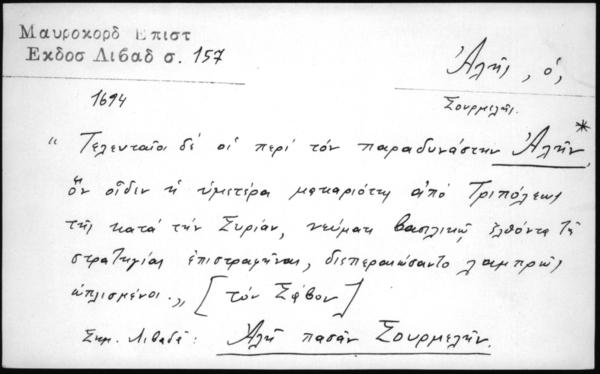 Μαυροκορδ Επιστ
Εκδοσ Λιβαδ σ. 157
Ἀλῆς, ὁ,
1694
Σουρμελῆς.
"Τελευταῖοι δέ οἱ περί τόν παραδυνάστην Ἀλῆν*
ὅν οἶδεν ἡ ὑμετέρα μακαριότης ἀπό Τριπόλεως
τῆς κατά τήν Συρίαν, νεύματι βασιλικῷ ἐλθόντα τῆς
στρατηγίας ἐπιστραφῆναι, διεπεραιώσαντο λαμπρῶς
ὡπλισμένοι.„ [τόν Σάβον]
Σημ. Λιβαδᾶ: Ἀλῆ πασᾶν Σουρμελῆν.